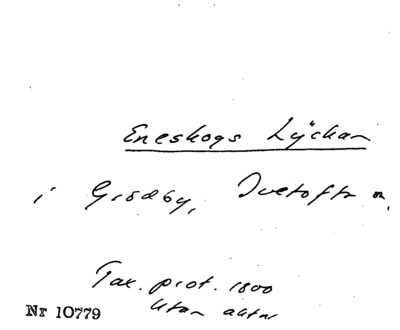 Eneskogs Lyckan
i Grödby, Ivetofta n.
Tax. prot. 1800
Utan aktnr
Nr 10779